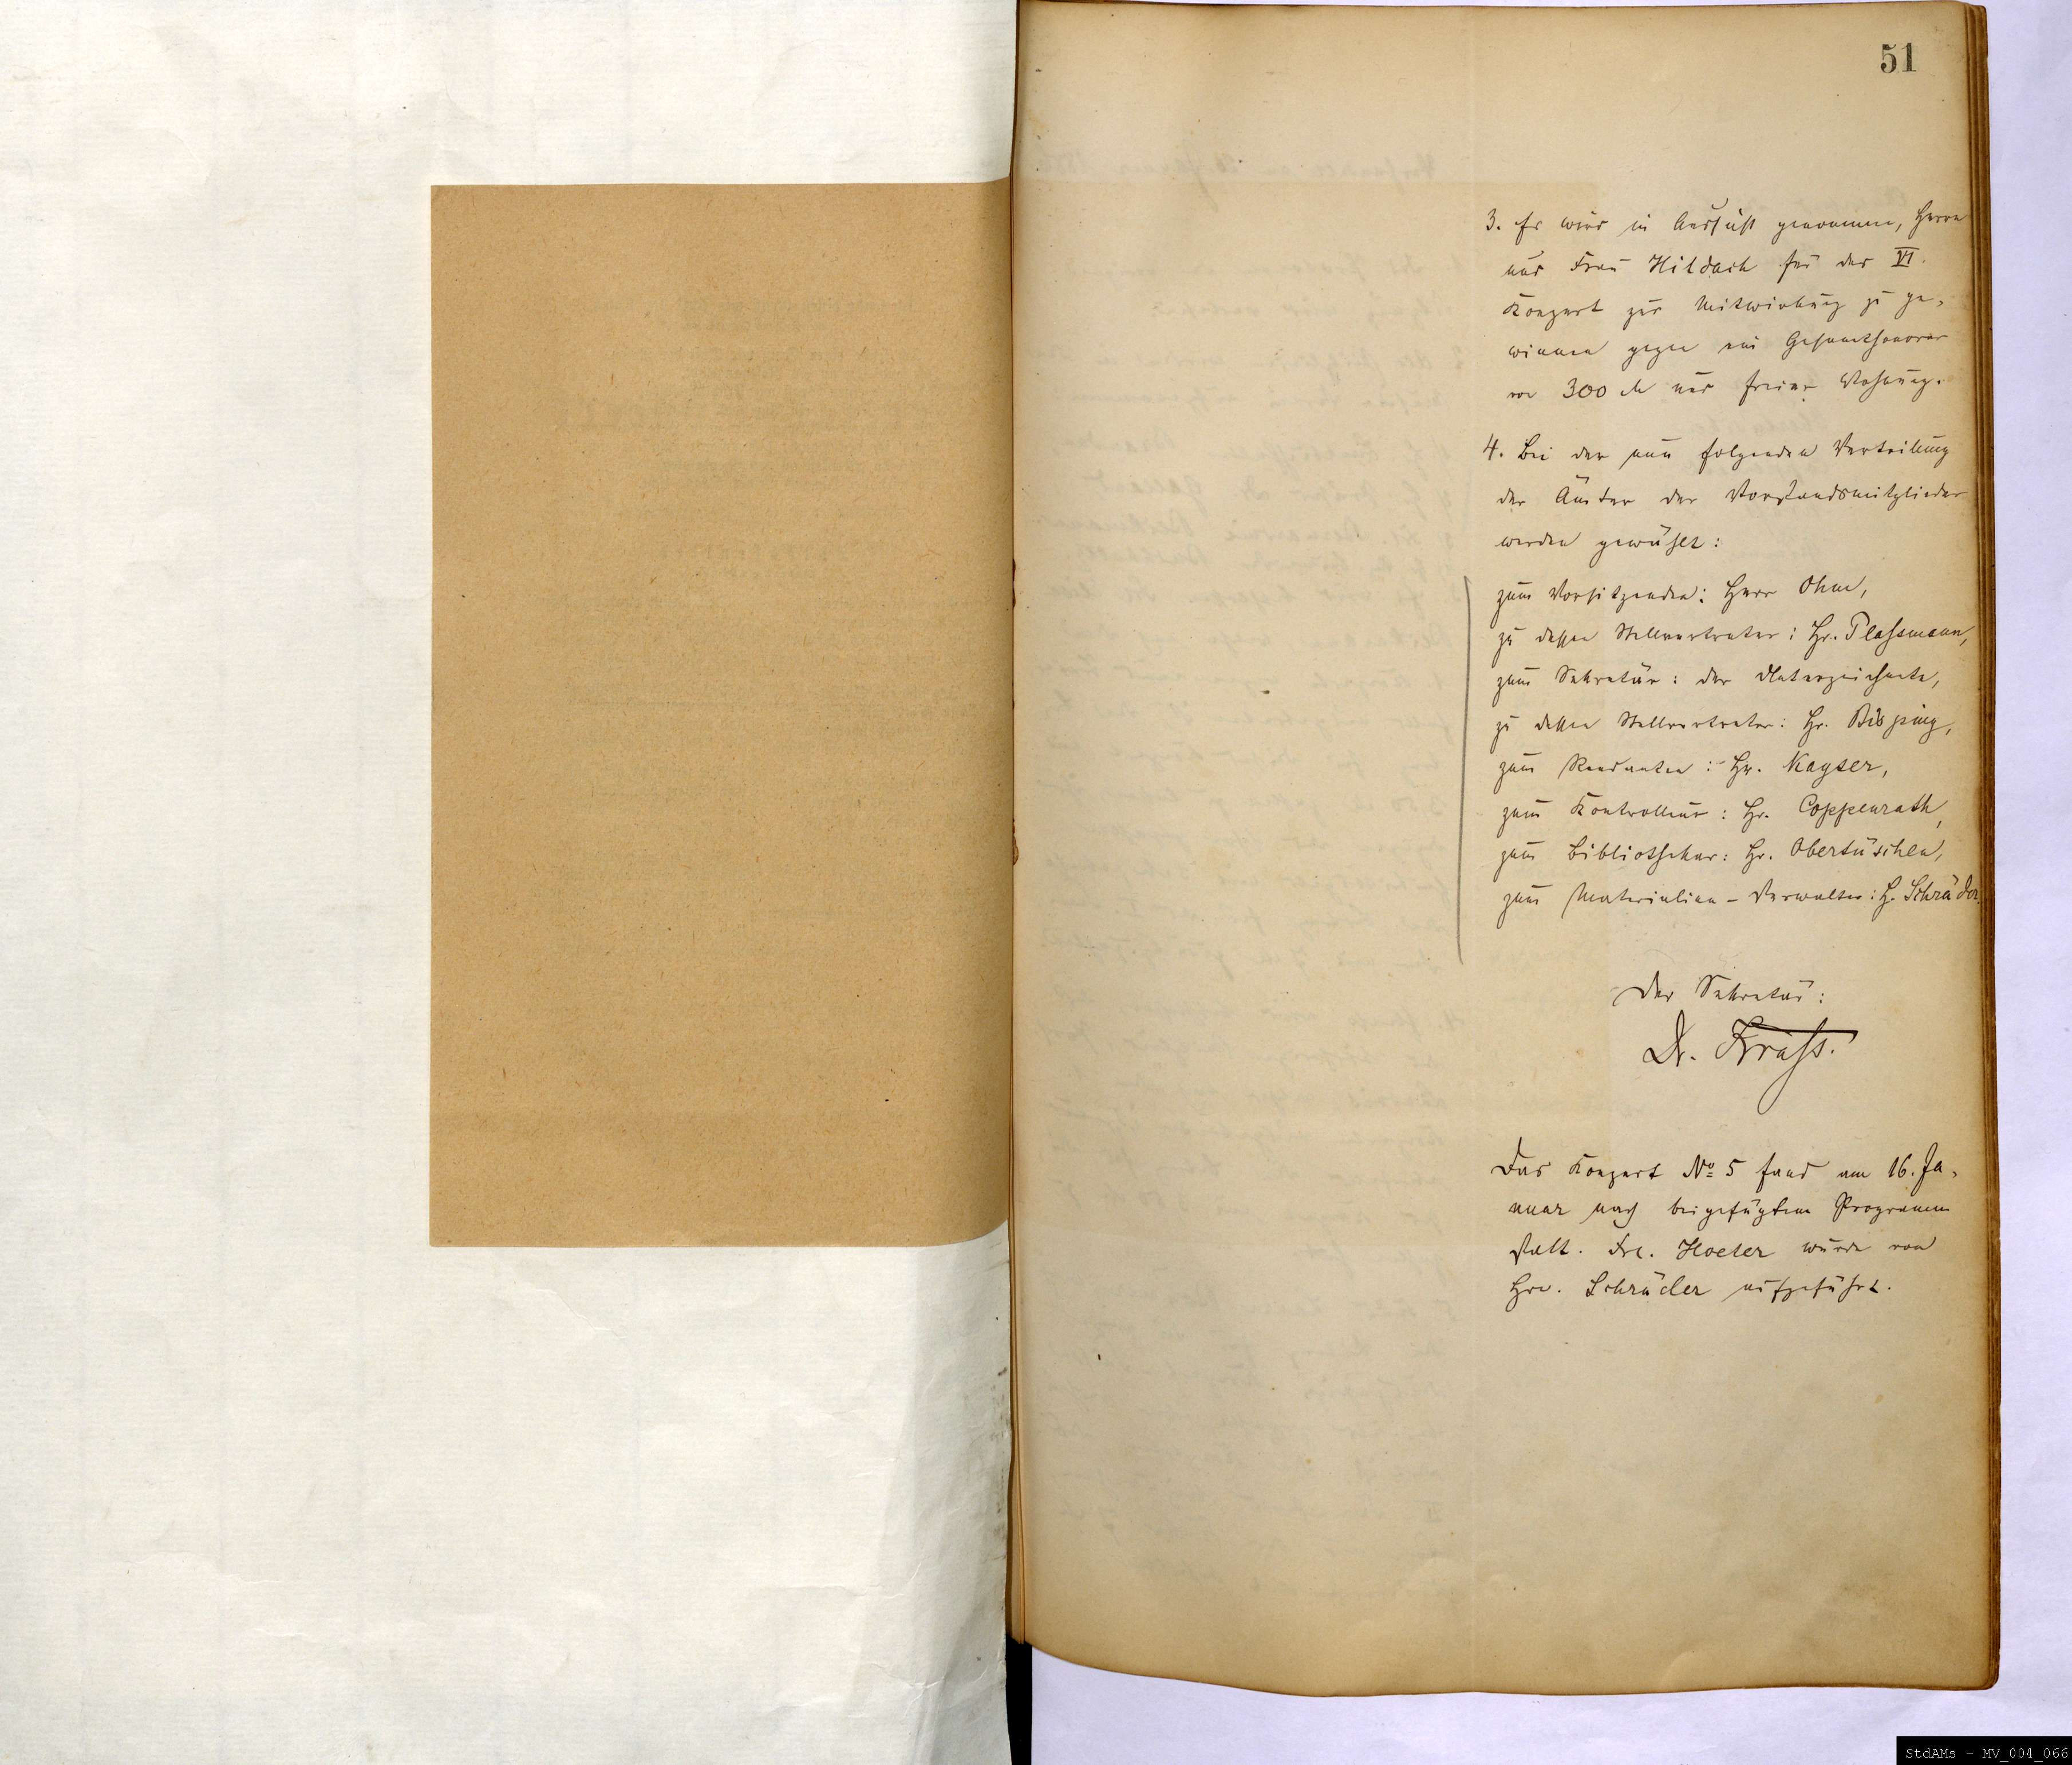 51
3. Es wird in Aussicht genommen, Herrn
und Frau Hildach für das VI.
Konzert zur Mitwirkung zu ge-
winnen gegen ein Gesamthonorar
von 300 M und freier Wohnung.
4. Bei der nun folgenden Verteilung
der Ämter der Vorstandsmitglieder
werden gewählt:
zum Vorsitzenden: Herr Ohm,
zu dessen Stellvertreter: Hr. Plassmann,
zum Sekretär: der Unterzeichnete,
zu dessen Stellvertreter: Hr. Bisping,
zum Rendanten: Hr. Kayser,
zum Kontrolleur: Hr. Coppenrath,
zum Bibliothekar: Hr. Obertüschen,
zum Materialien-Verwalter: H. Schräder.
Der Sekretär:
Dr. Krass.
Das Konzert No 5 fand am 16. Ja-
nuar nach beigefügtem Programm
statt. Frl. Hoeter wurde von
Hrn. Schräder aufgeführt.
StdAMs - MV_004_066